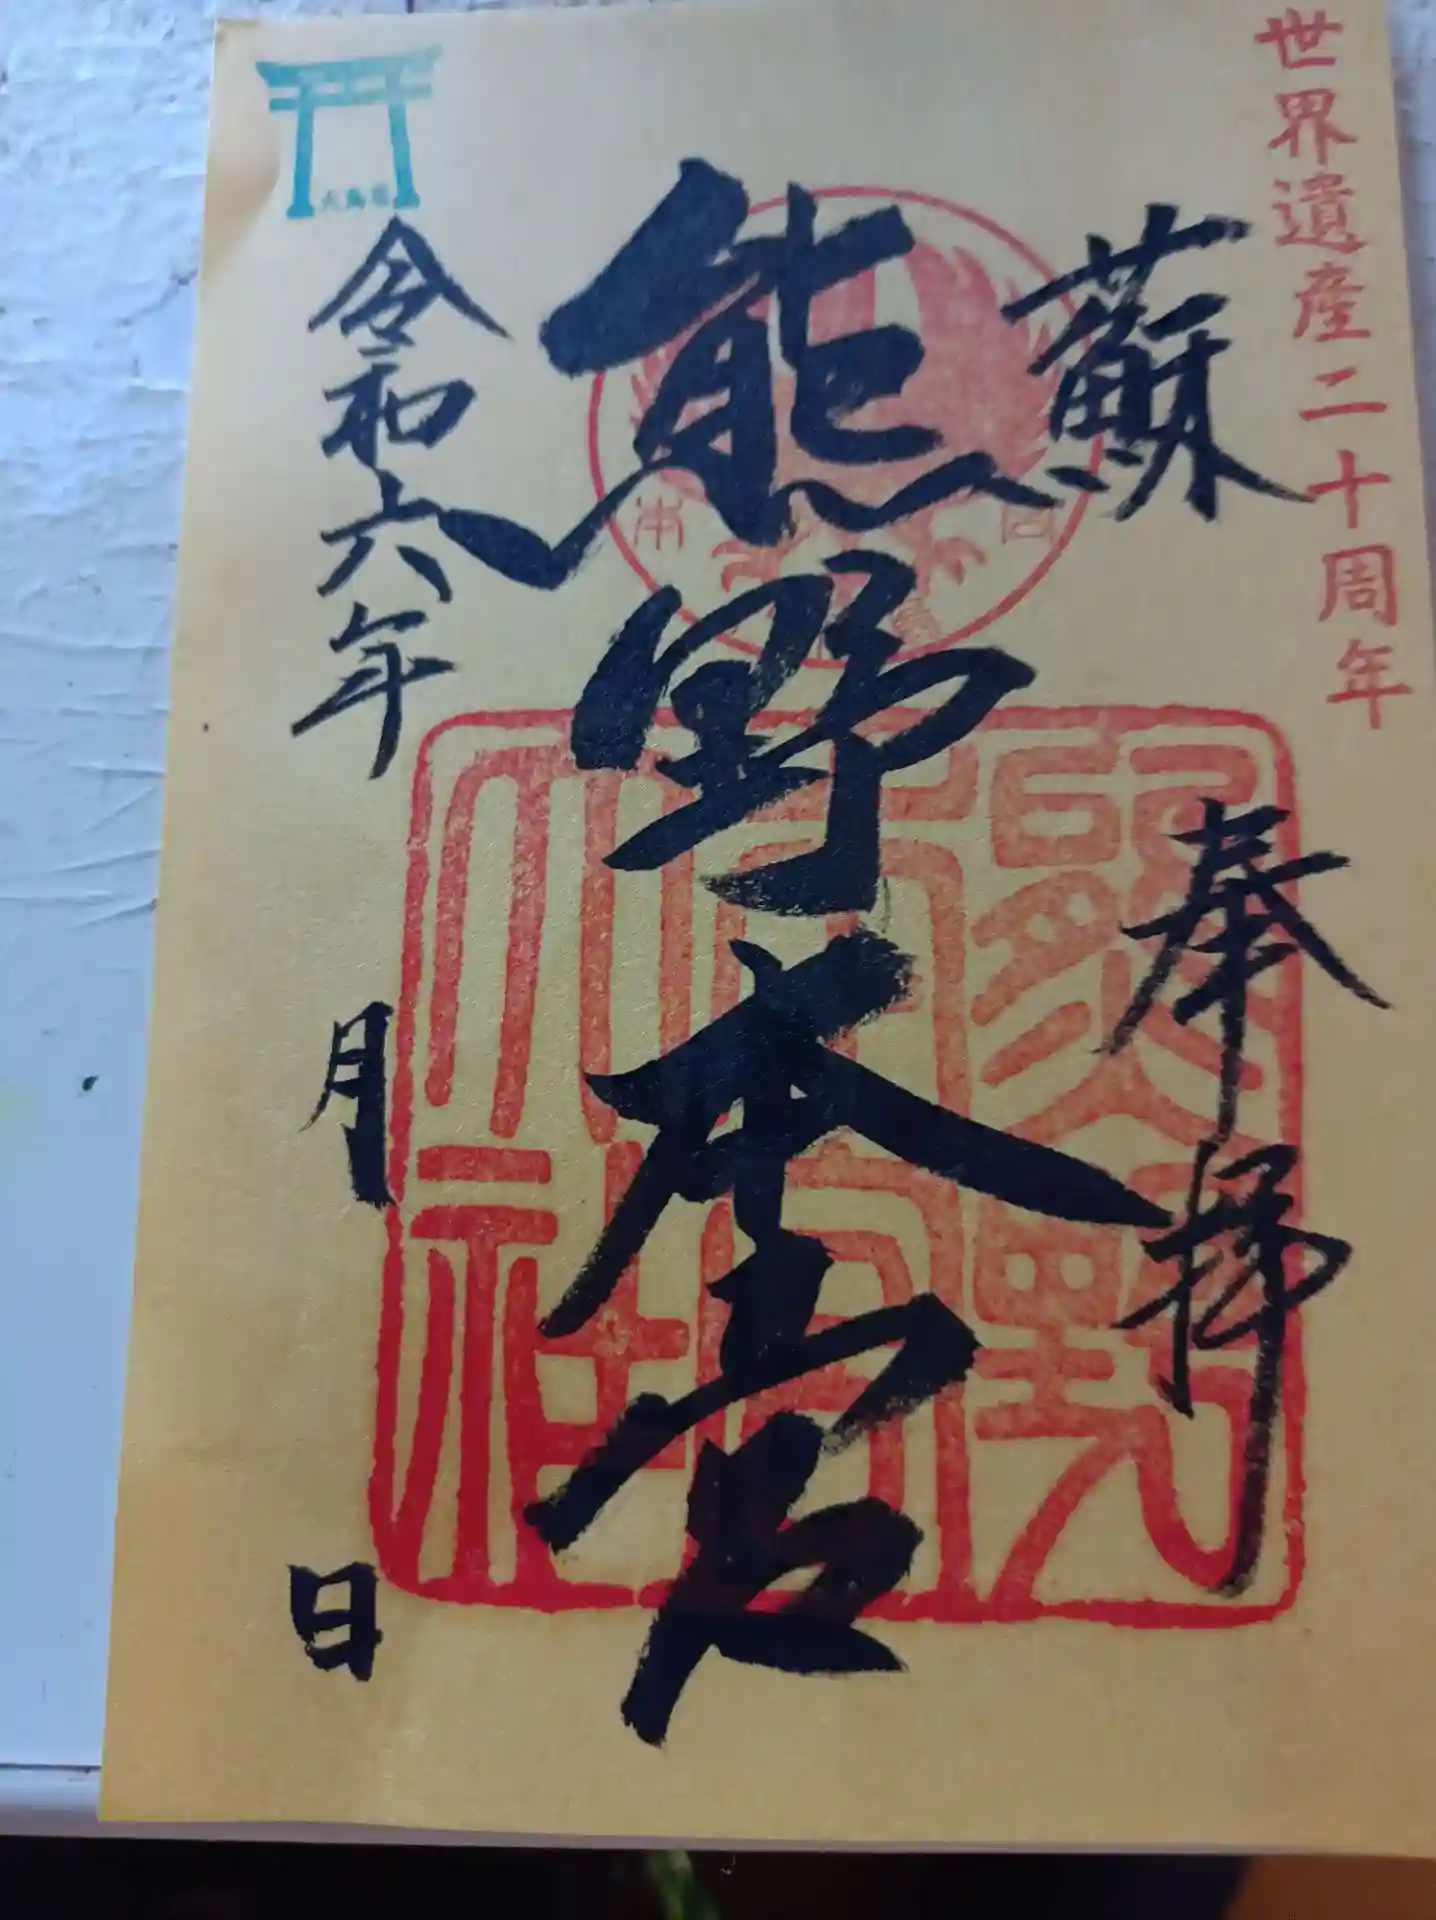 世界遺産二十周年
蘇
奉拝
熊野本宮
熊野本宮大社
大鳥居
令和六年
月
日